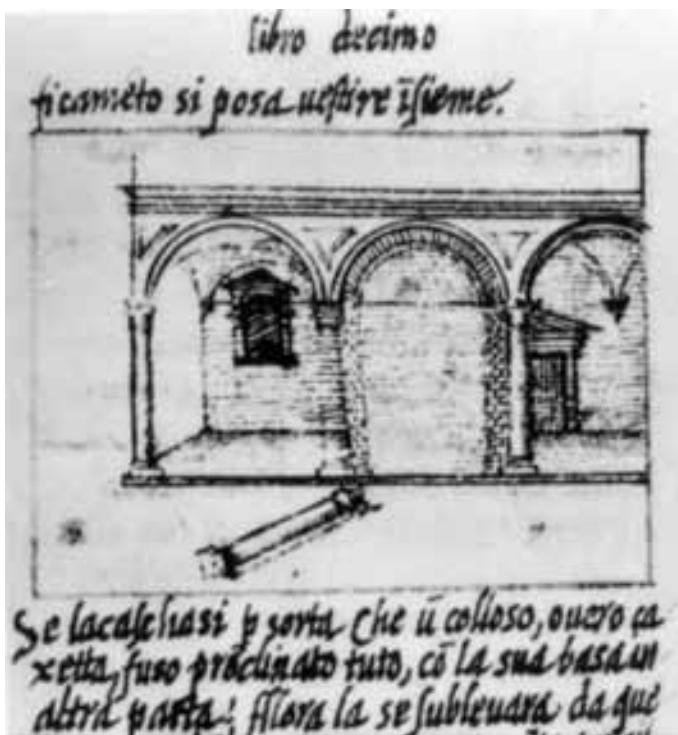 libro decimo
ficameto si posa uestire īsieme.
Se lacaschasi p sorta che ū colloso, ouero ca
xetta, fuso proclinato tuto, cō la sua basa un
altra parta; Allora la se subleuara da que